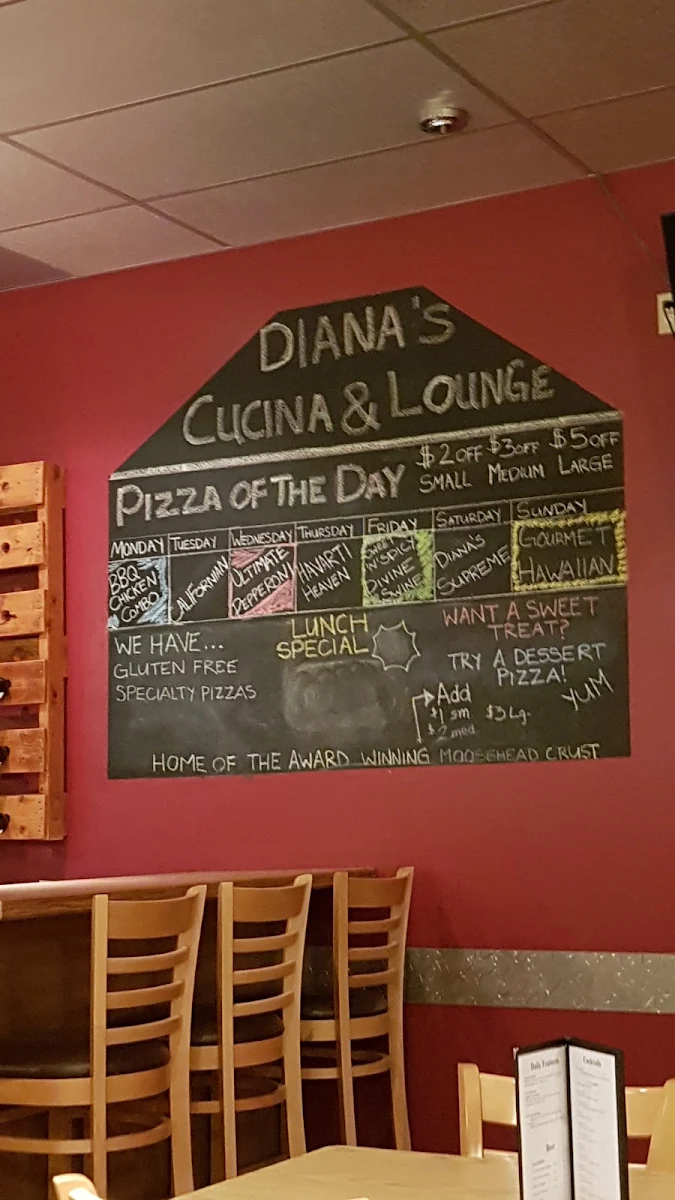 DIANA'S
CUCINA & LOUNGE
PIZZA OF THE DAY
$2 OFF $3 OFF $5 OFF
SMALL MEDIUM LARGE
MONDAY TUESDAY WEDNESDAY THURSDAY FRIDAY SATURDAY SUNDAY
BBQ
CHICKEN
COMBO
CALIFORNIAN
ULTIMATE
PEPPERONI
HAVARTI
HEAVEN
SWEET
N' SPICY
DIVINE
SWINE
DIANA'S
SUPREME
GOURMET
HAWAIIAN
WE HAVE...
GLUTEN FREE
SPECIALTY PIZZAS
LUNCH
SPECIAL
WANT A SWEET
TREAT?
TRY A DESSERT
PIZZA!
YUM
Add
$1 sm $3 Lg.
$2 med
HOME OF THE AWARD WINNING MOOSEHEAD CRUST
Cocktails
Beer